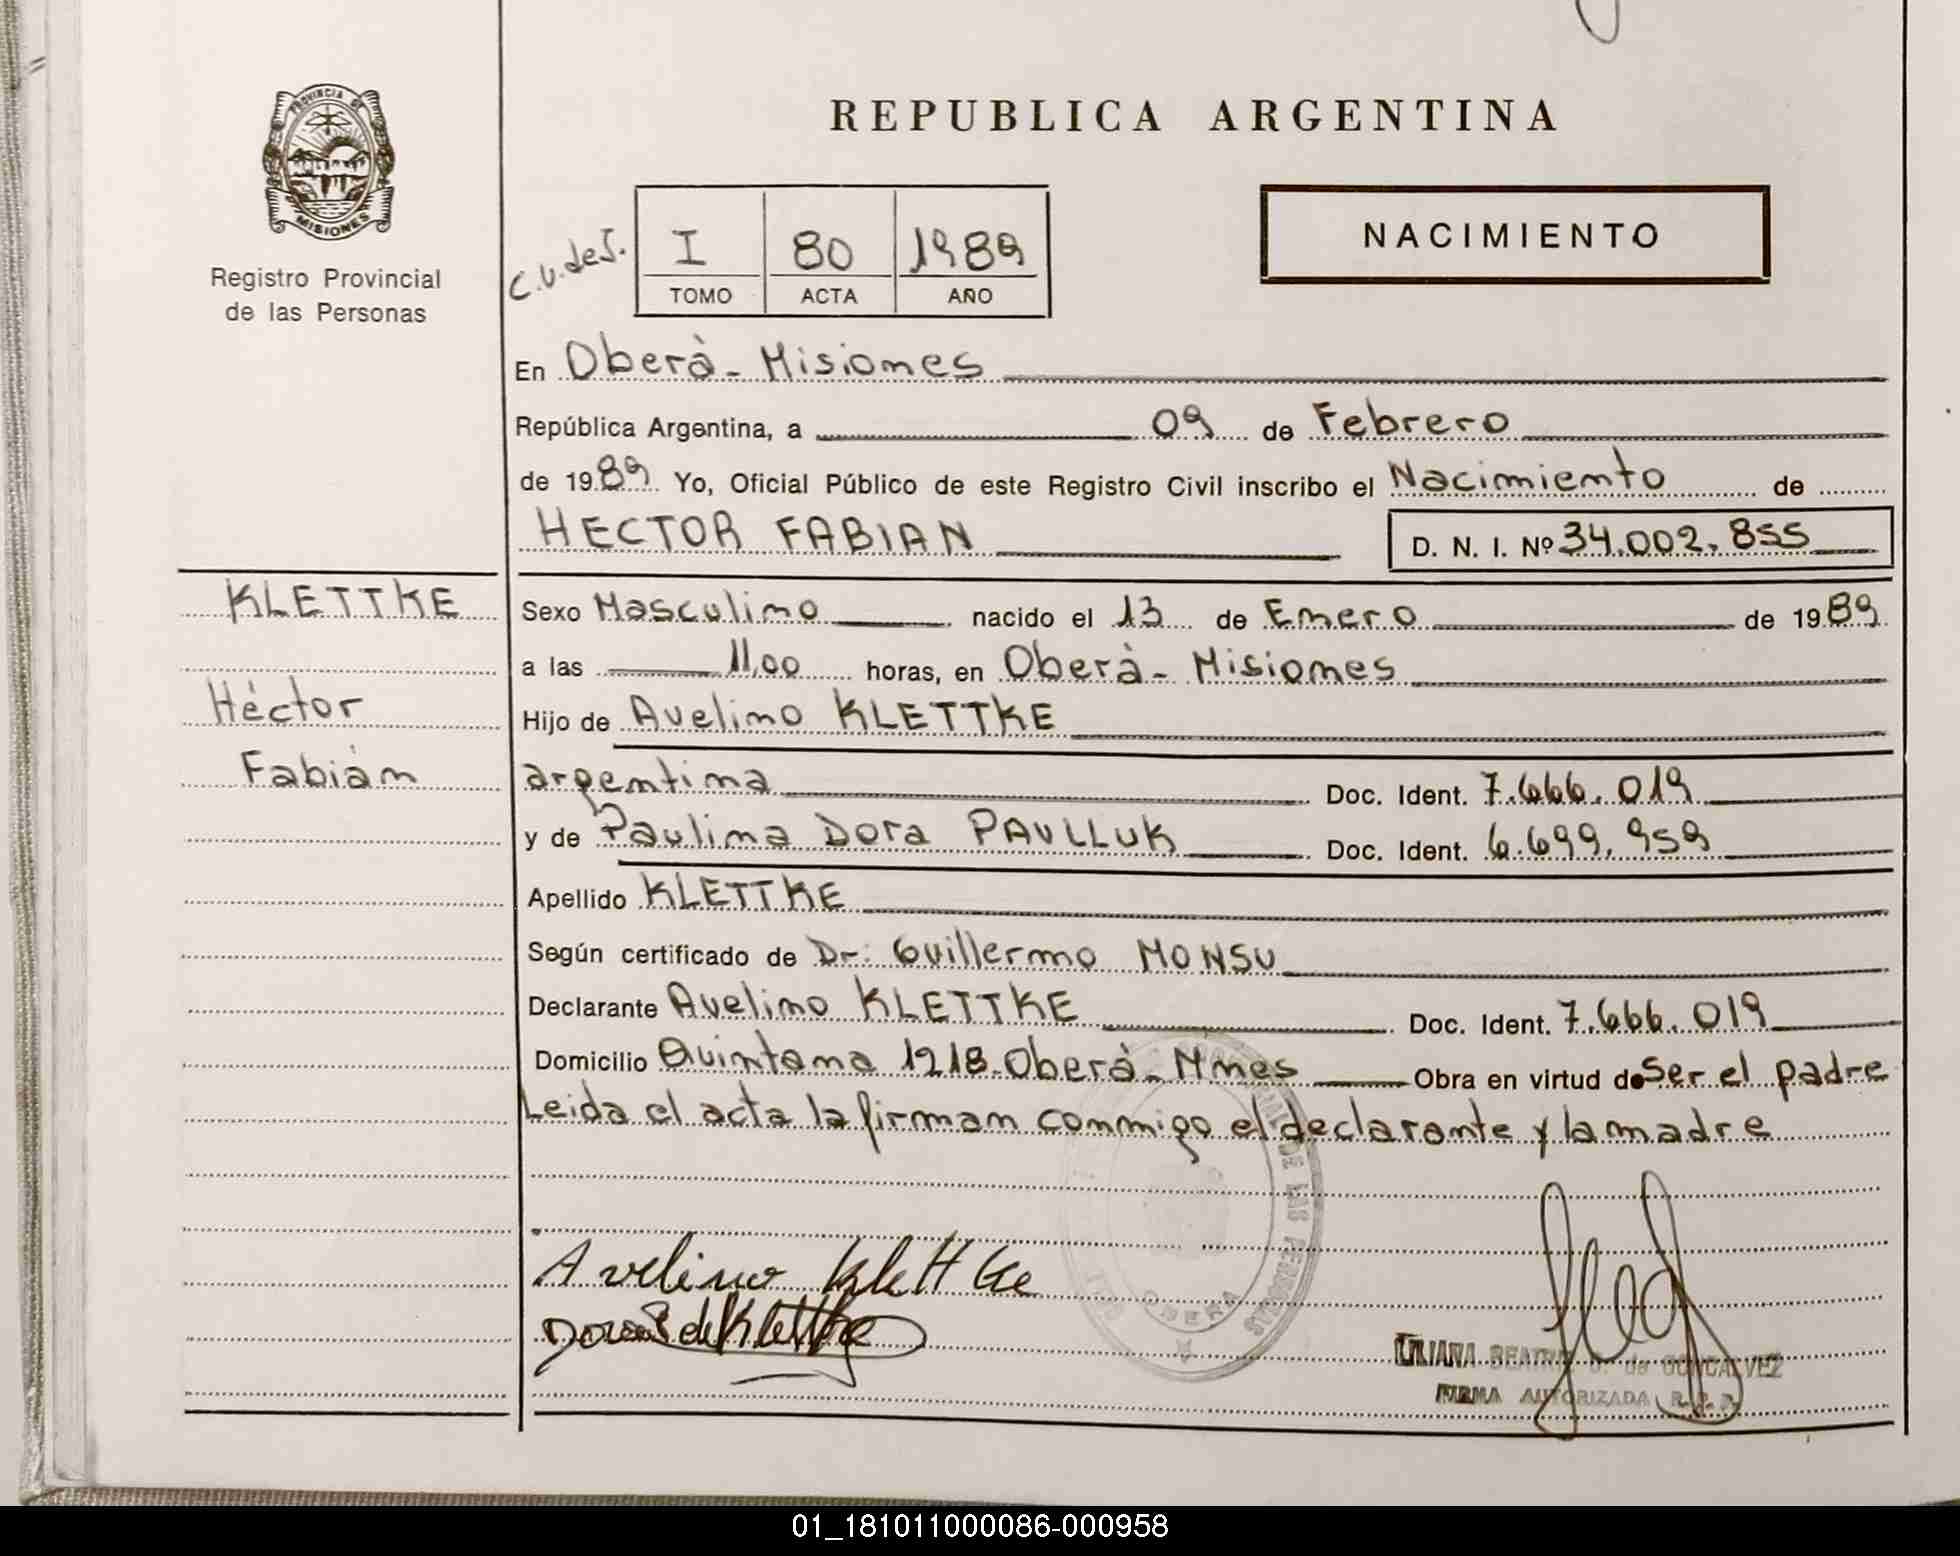 PROVINCIA DE
MISIONES
Registro Provincial
de las Personas
REPUBLICA ARGENTINA
NACIMIENTO
C.U. de I.
I 80 1989
TOMO ACTA AÑO
En Oberà - Misiones
República Argentina, a 09 de Febrero
de 1989 Yo, Oficial Público de este Registro Civil inscribo el Nacimiento de
HECTOR FABIAN D. N. I. Nº 34.002.855
KLETTKE
Héctor
Fabián
Sexo Masculino nacido el 13 de Enero de 1989
a las 11,00 horas, en Oberà - Misiones
Hijo de Avelino KLETTKE
argentina Doc. Ident. 7.666.019
y de Paulina Dora PAULLUK Doc. Ident. 6.699.959
Apellido KLETTKE
Según certificado de Dr: Guillermo MONSU
Declarante Avelino KLETTKE Doc. Ident. 7.666.019
Domicilio Quintana 1218. Oberà - Mnes Obra en virtud de Ser el padre
Leida el acta la firman conmigo el declarante y la madre
Avelino Klettke
de Klettke
DE LAS PERSONAS
OBERA
LILIANA BEATRIZ de GONCALVEZ
FIRMA AUTORIZADA R. P. P.
01_181011000086-000958